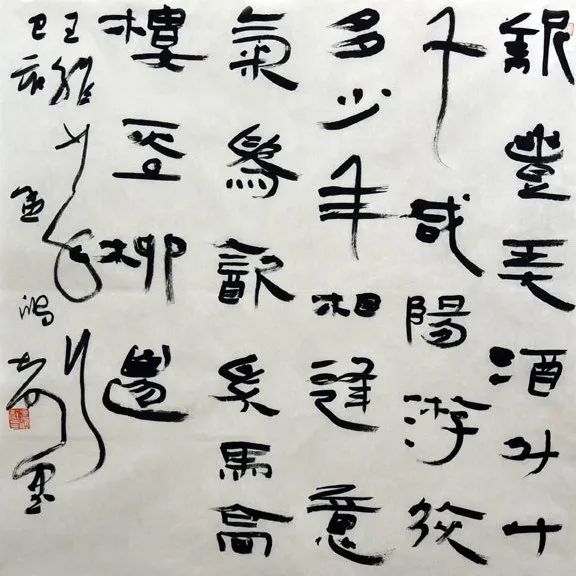 新豐美酒斗十
千咸陽游俠
多少年相逢意
氣為飲系馬高
樓垂柳邊
王維少年行
己亥鴻